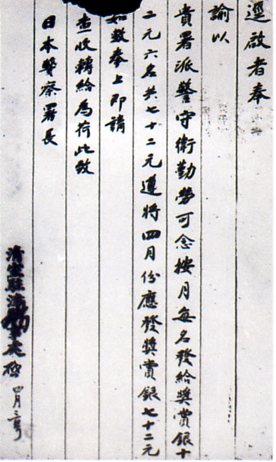 逕啟者奉
諭以
貴署派警守衛勤勞可念按月每名發給獎賞銀十
二元六名共七十二元遵將四月份應發獎賞銀七十二元
如數奉上即請
查收轉給為荷此致
日本警察署長
清室駐津